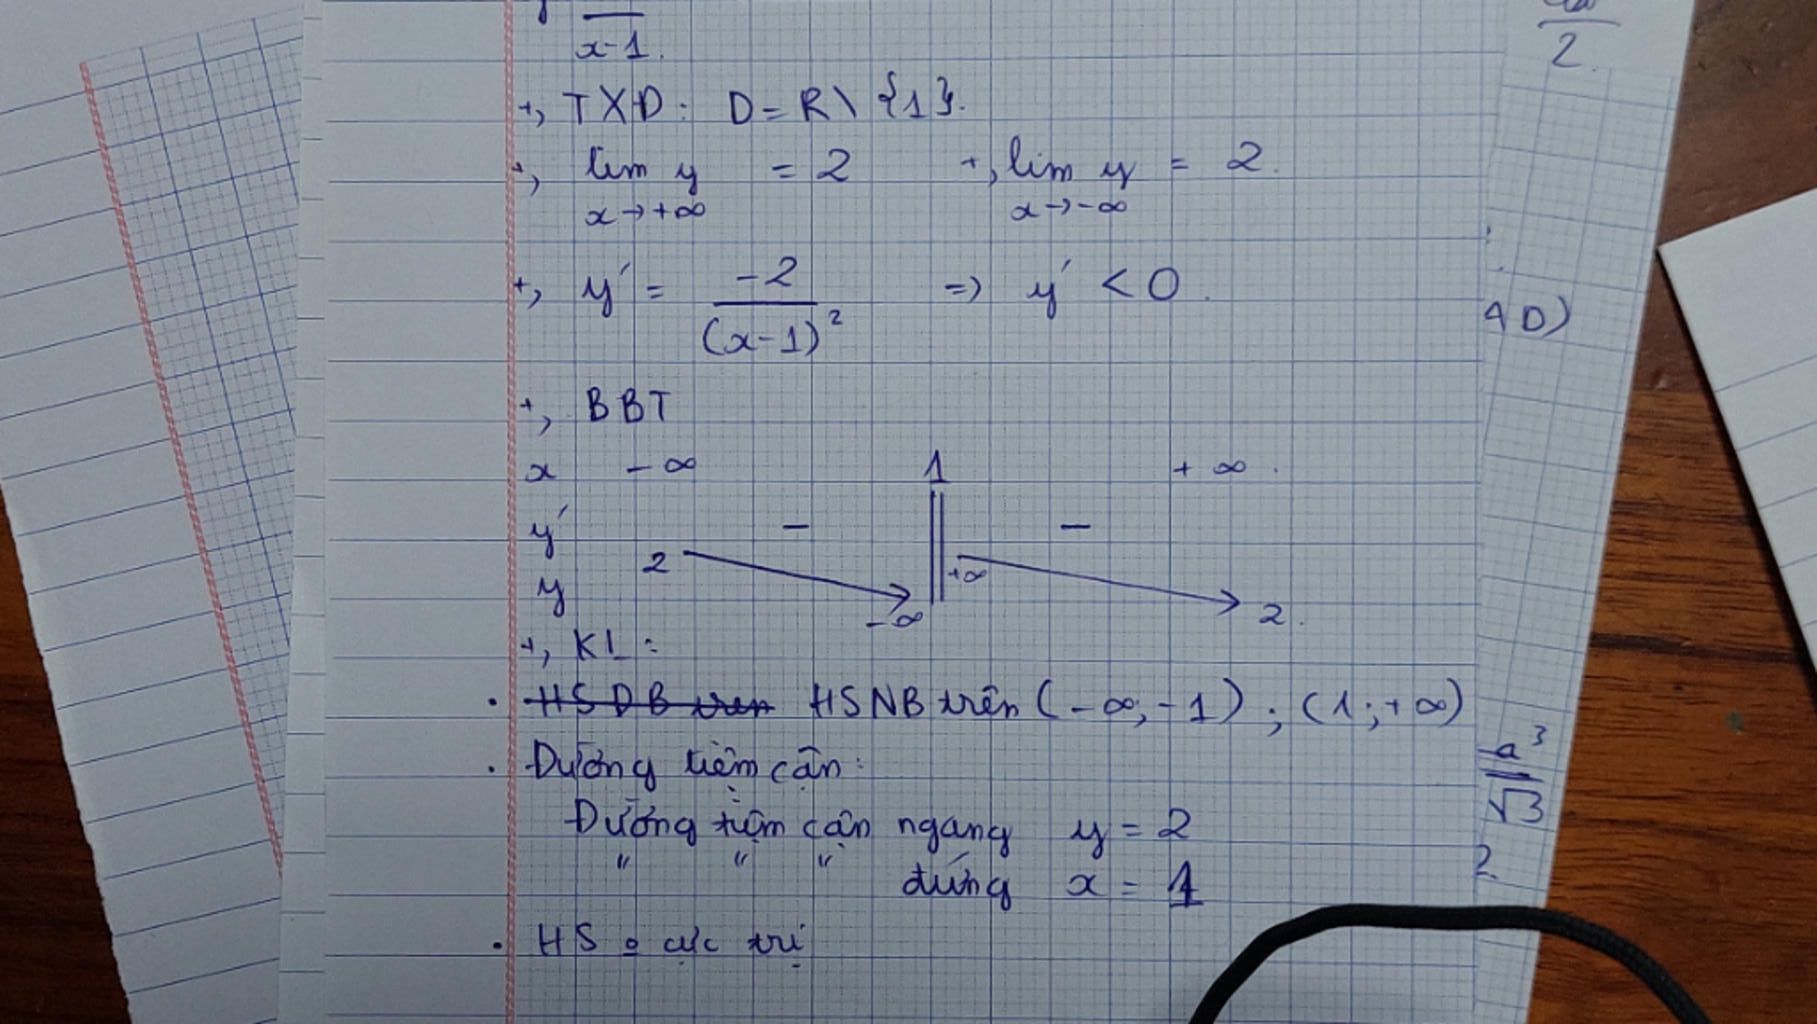 x-1.
+, TXD: D = R \ {1}.
+, lim y = 2 +, lim y = 2.
x→+∞ x→-∞
+, y' = -2 / (x-1)² => y' < 0.
+, BBT
x -∞ 1 +∞.
y' - || -
y 2 -∞ || +∞ 2.
+, KL:
. HSĐB trên HSNB trên (-∞;-1); (1;+∞)
. Đường tiệm cận:
Đường tiệm cận ngang y = 2
" " " đứng x = 1
. HS 0 cực trị
2.
AD)
a³
√3
2